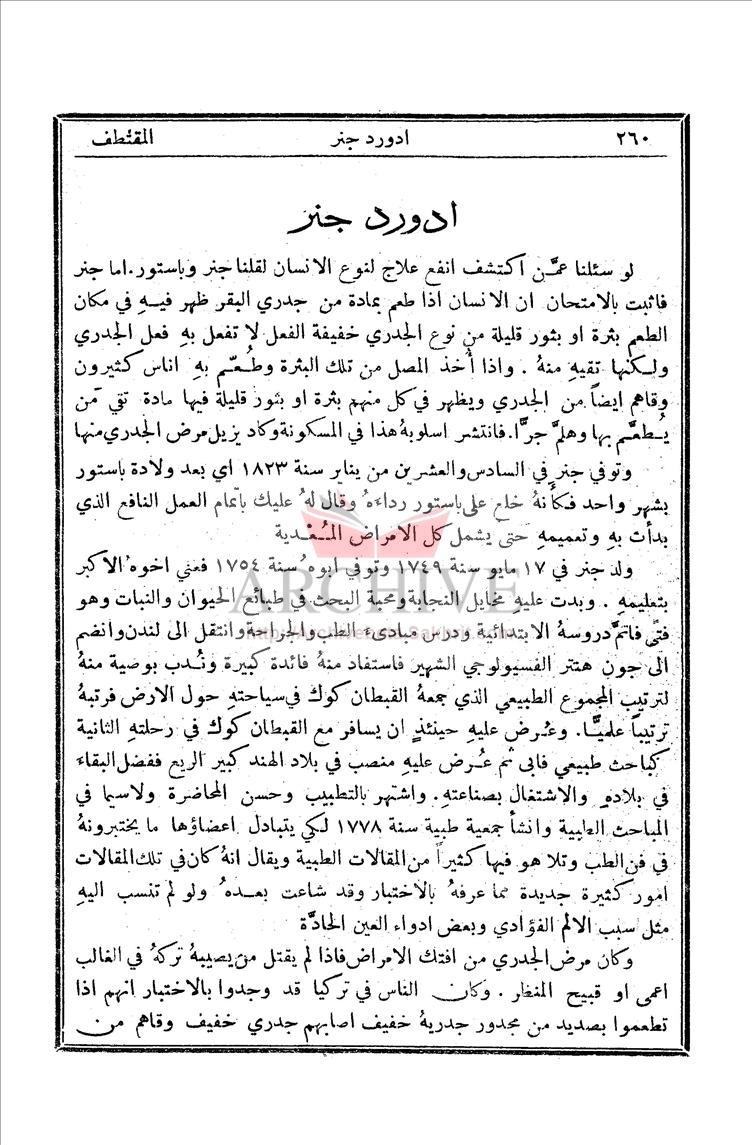 ٢٦٠ ادورد جنر المقتطف
ادورد جنر
لو سئلنا عمَّن اكتشف انفع علاج لنوع الانسان لقلنا جنر وباستور. اما جنر
فاثبت بالامتحان ان الانسان اذا طعم بمادة من جدري البقر ظهر فيهِ في مكان
الطعم بثرة او بثور قليلة من نوع الجدري خفيفة الفعل لا تفعل بهِ فعل الجدري
ولكنها تقيهِ منهُ . واذا أُخذ المصل من تلك البثرة وطُعّم بهِ اناس كثيرون
وقاهم ايضاً من الجدري ويظهر في كل منهم بثرة او بثور قليلة فيها مادة تقي مَن
يُطعَّم بها وهلمَّ جرًّا. فانتشر اسلوبهُ هذا في المسكونة وكاد يزيل مرض الجدري منها
وتوفي جنر في السادس والعشرين من يناير سنة ١٨٢٣ اي بعد ولادة باستور
بشهر واحد فكأنهُ خلع على باستور رداءهُ وقال لهُ عليك باتمام العمل النافع الذي
بدأت بهِ وتعميمهِ حتى يشمل كل الامراض المُعْدية
ولد جنر في ١٧ مايو سنة ١٧٤٩ وتوفي ابوهُ سنة ١٧٥٤ فعني اخوهُ الاكبر
بتعليمهِ . وبدت عليهِ مخايل النجابة ومحبة البحث في طبائع الحيوان والنبات وهو
فتًى فاتمَّ دروسهُ الابتدائية ودرس مبادىء الطب والجراحة وانتقل الى لندن وانضم
الى جون هنتر الفسيولوجي الشهير فاستفاد منهُ فائدة كبيرة ونُدب بوصية منهُ
لترتيب المجموع الطبيعي الذي جمعهُ القبطان كوك في سياحتهِ حول الارض فرتبهُ
ترتيباً علميًّا. وعُرض عليهِ حينئذٍ ان يسافر مع القبطان كوك في رحلتهِ الثانية
كباحث طبيعي فابى ثم عُرض عليهِ منصب في بلاد الهند كبير الريع ففضل البقاء
في بلادهِ والاشتغال بصناعتهِ. واشتهر بالتطبيب وحسن المحاضرة ولاسيما في
المباحث الطبية وانشأ جمعية طبية سنة ١٧٧٨ لكي يتبادل اعضاؤها ما يختبرونهُ
في فن الطب وتلا هو فيها كثيراً من المقالات الطبية ويقال انهُ كان في تلك المقالات
امور كثيرة جديدة مما عرفهُ بالاختبار وقد شاعت بعدهُ ولو لم تنسب اليهِ
مثل سبب الالم الفؤادي وبعض ادواء العين الحادَّة
وكان مرض الجدري من افتك الامراض فاذا لم يقتل من يصيبهُ تركهُ في الغالب
اعمى او قبيح المنظر . وكان الناس في تركيا قد وجدوا بالاختبار انهم اذا
تطعموا بصديد من مجدور جدريهُ خفيف اصابهم جدري خفيف وقاهم من
ARCHIVE